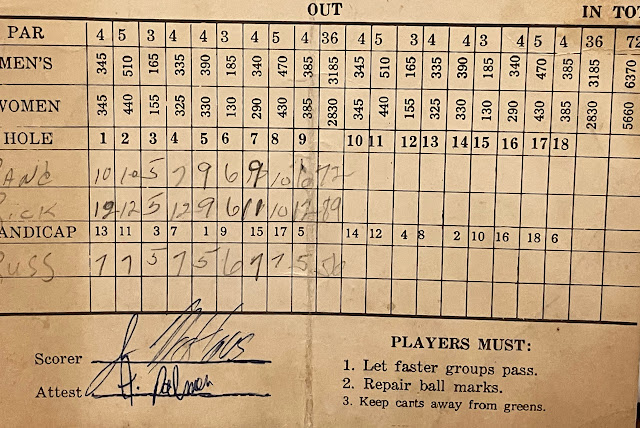 OUT IN TOT
PAR 4 5 3 4 4 3 4 5 4 36 4 5 3 4 4 3 4 5 4 36 72
MEN'S 345 510 165 335 390 185 340 470 385 3185 345 510 165 335 390 185 340 470 385 3185 6370
WOMEN 345 440 155 325 330 130 290 430 385 2830 345 440 155 325 330 130 290 430 385 2830 5660
HOLE 1 2 3 4 5 6 7 8 9 10 11 12 13 14 15 16 17 18
10 10 5 7 9 6 9 10 6 72
12 12 5 12 9 6 11 10 12 89
ANDICAP 13 11 3 7 1 9 15 17 5 14 12 4 8 2 10 16 18 6
USS 7 7 5 7 5 6 7 7 5 56
Scorer
Attest
PLAYERS MUST:
1. Let faster groups pass.
2. Repair ball marks.
3. Keep carts away from greens.